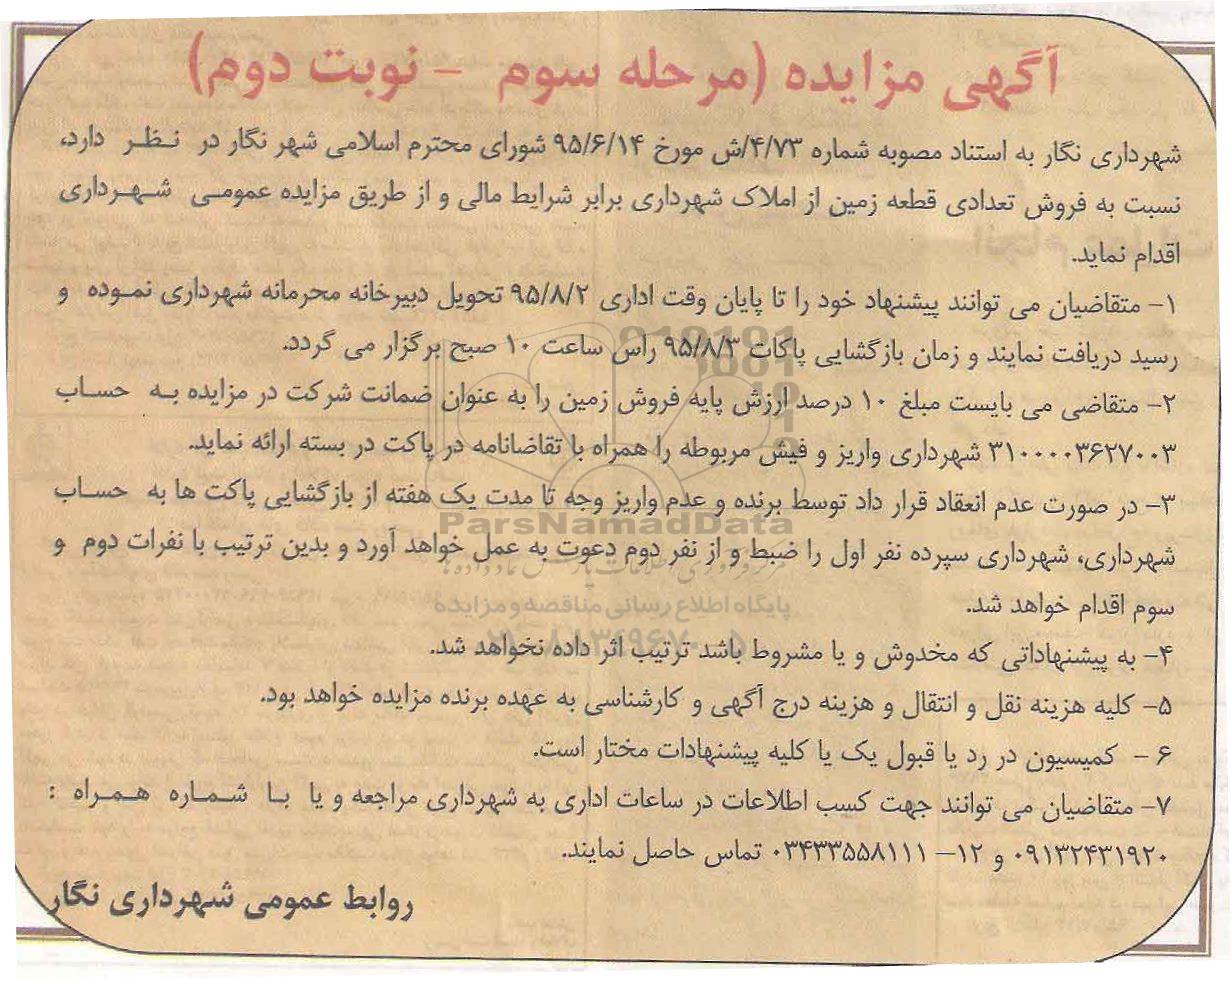 آگهی مزایده (مرحله سوم - نوبت دوم)
شهرداری نگار به استناد مصوبه شماره ۴/۷۳/ش مورخ ۹۵/۶/۱۴ شورای محترم اسلامی شهر نگار در نظر دارد،
نسبت به فروش تعدادی قطعه زمین از املاک شهرداری برابر شرایط مالی و از طریق مزایده عمومی شهرداری
اقدام نماید.
۱- متقاضیان می توانند پیشنهاد خود را تا پایان وقت اداری ۹۵/۸/۲ تحویل دبیرخانه محرمانه شهرداری نموده و
رسید دریافت نمایند و زمان بازگشایی پاکات ۹۵/۸/۳ راس ساعت ۱۰ صبح برگزار می گردد.
۲- متقاضی می بایست مبلغ ۱۰ درصد ارزش پایه فروش زمین را به عنوان ضمانت شرکت در مزایده به حساب
۳۱۰۰۰۰۳۶۲۷۰۰۳ شهرداری واریز و فیش مربوطه را همراه با تقاضانامه در پاکت در بسته ارائه نماید.
۳- در صورت عدم انعقاد قرار داد توسط برنده و عدم واریز وجه تا مدت یک هفته از بازگشایی پاکت ها به حساب
ParsNamadData
شهرداری، شهرداری سپرده نفر اول را ضبط و از نفر دوم دعوت به عمل خواهد آورد و بدین ترتیب با نفرات دوم و
سوم اقدام خواهد شد.
پایگاه اطلاع رسانی مناقصه و مزایده
۴- به پیشنهاداتی که مخدوش و یا مشروط باشد ترتیب اثر داده نخواهد شد.
۵- کلیه هزینه نقل و انتقال و هزینه درج آگهی و کارشناسی به عهده برنده مزایده خواهد بود.
۶ - کمیسیون در رد یا قبول یک یا کلیه پیشنهادات مختار است.
۷- متقاضیان می توانند جهت کسب اطلاعات در ساعات اداری به شهرداری مراجعه و یا با شماره همراه :
۰۹۱۳۲۴۳۱۹۲۰ و ۱۲- ۰۳۴۳۳۵۵۸۱۱۱ تماس حاصل نمایند.
روابط عمومی شهرداری نگار